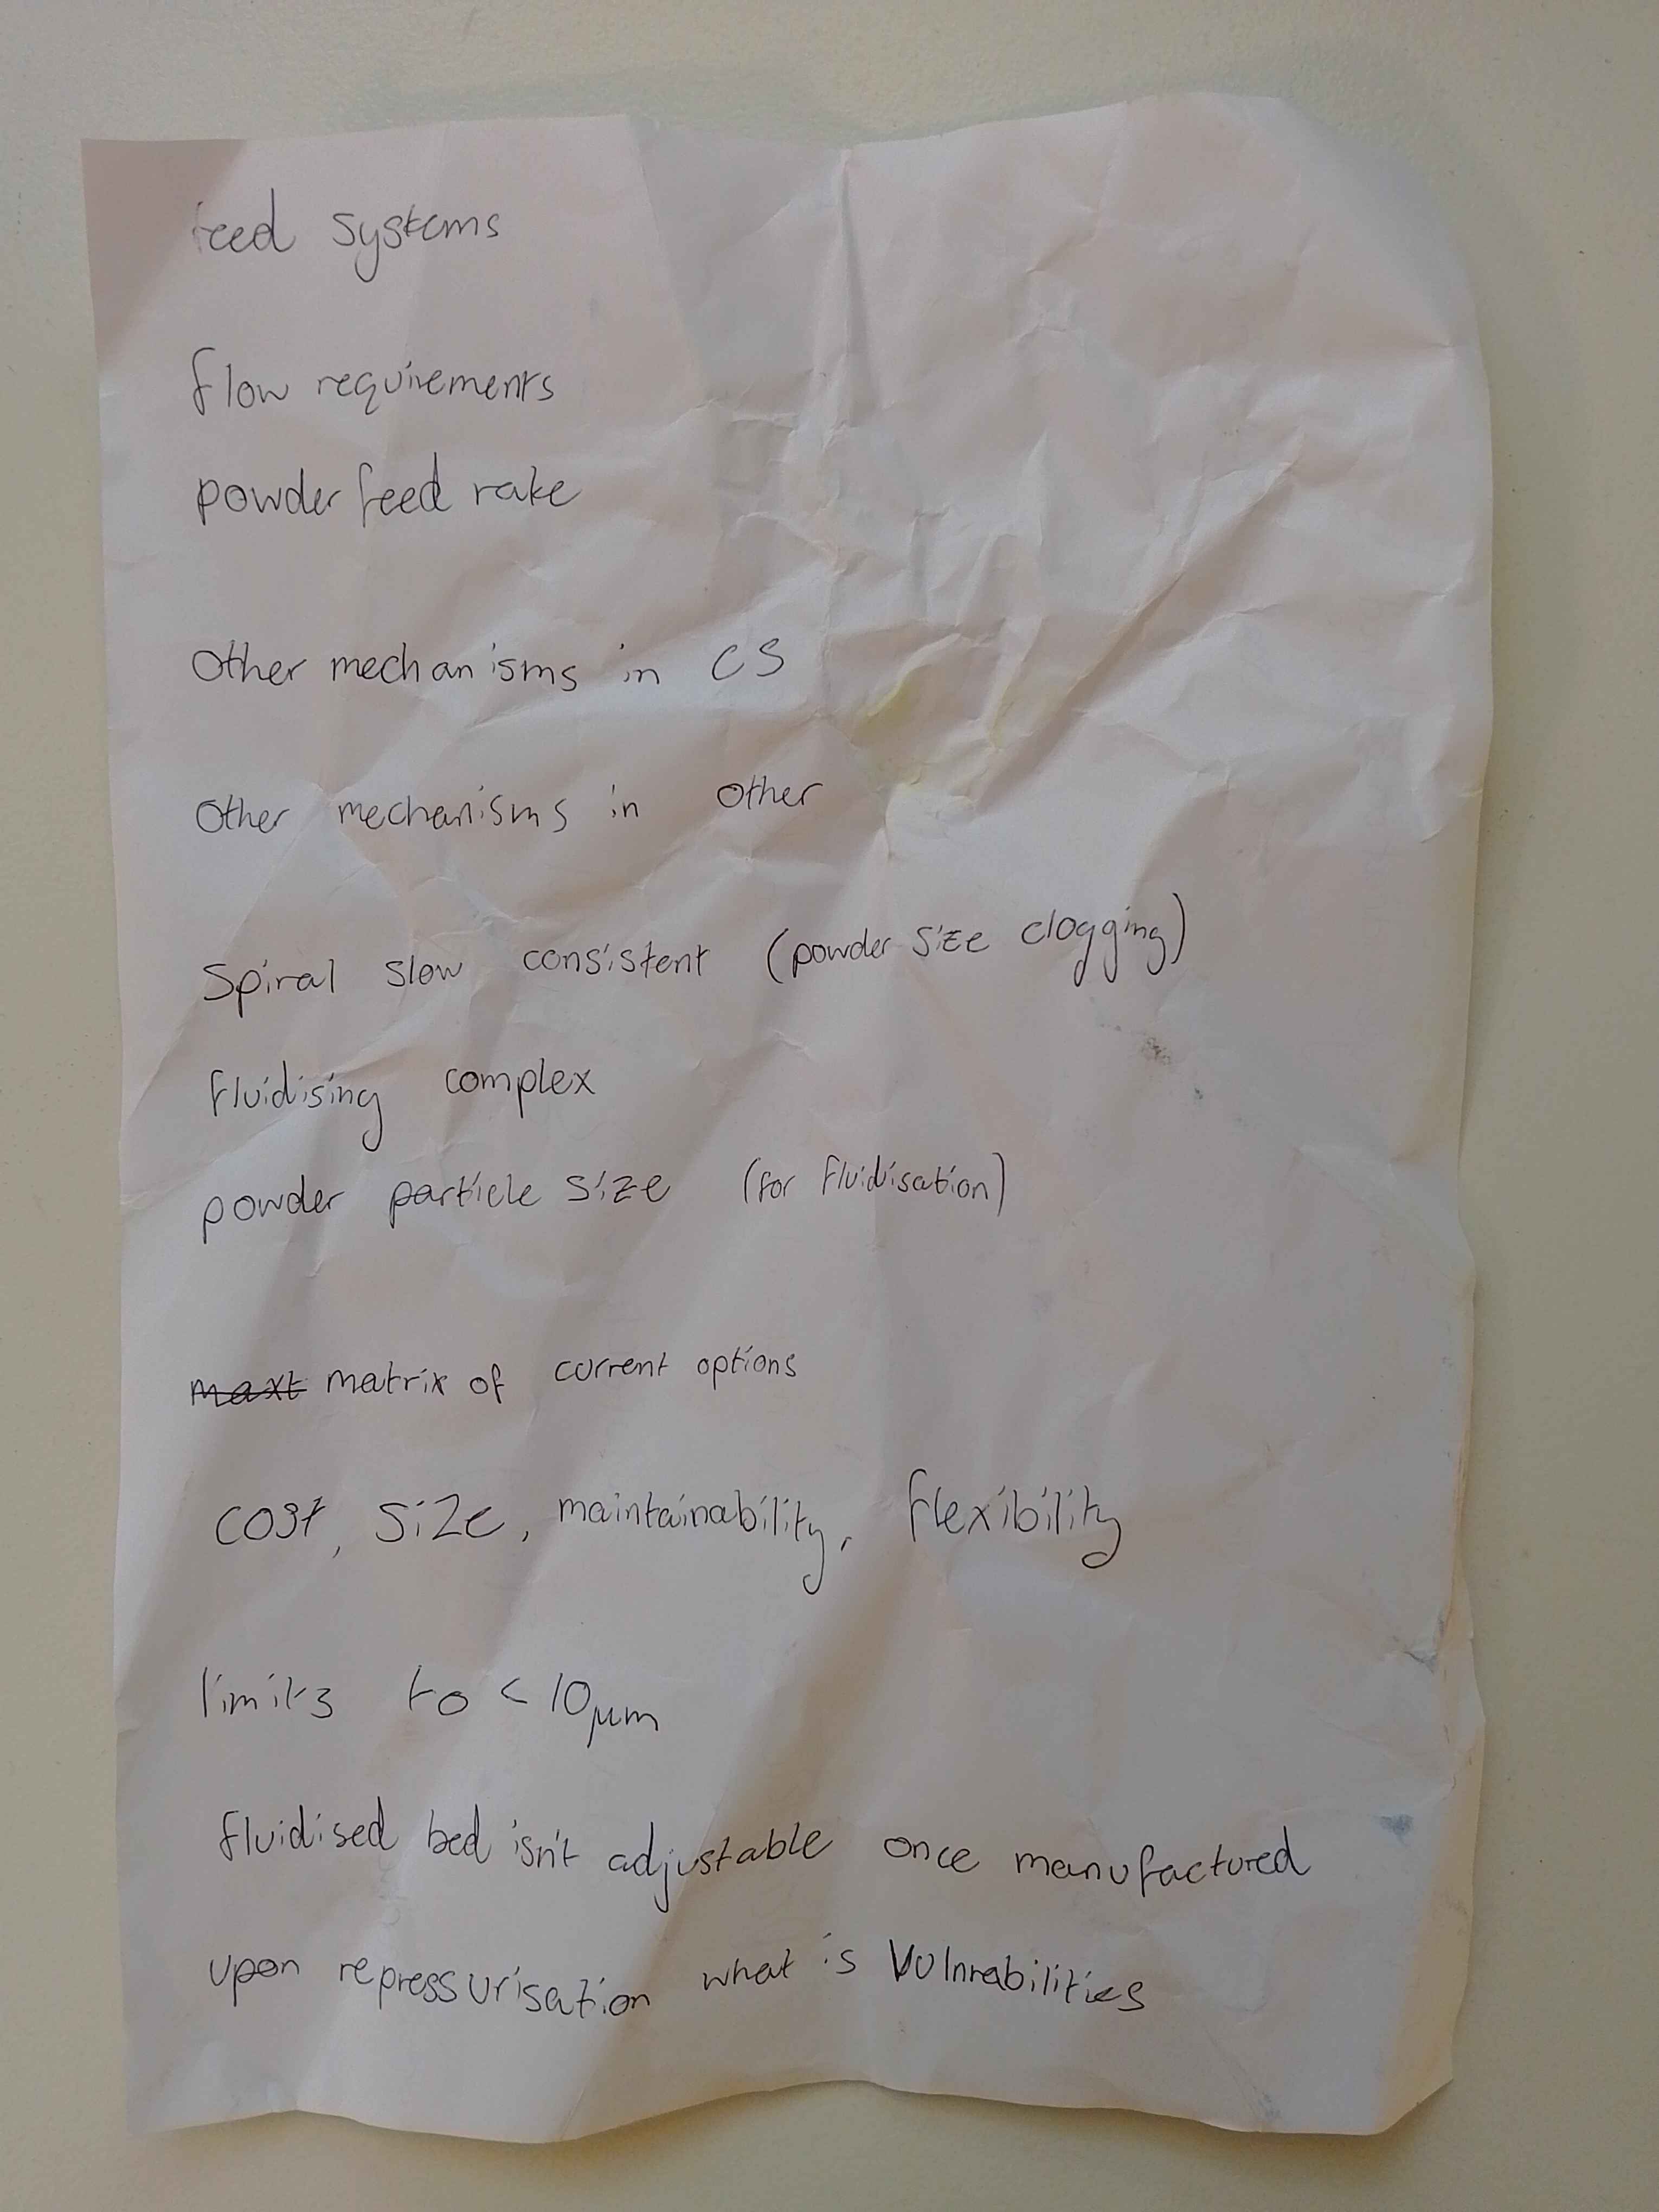 feed systems
flow requirements
powder feed rate
Other mechanisms in CS
Other mechanisms in other
Spiral slow consistent (powder size clogging)
fluidising complex
powder particle size (for fluidisation)
maxt matrix of current options
cost, size, maintainability, flexibility
limits to < 10µm
fluidised bed isn't adjustable once manufactured
upon repressurisation what is Vulnrabilities